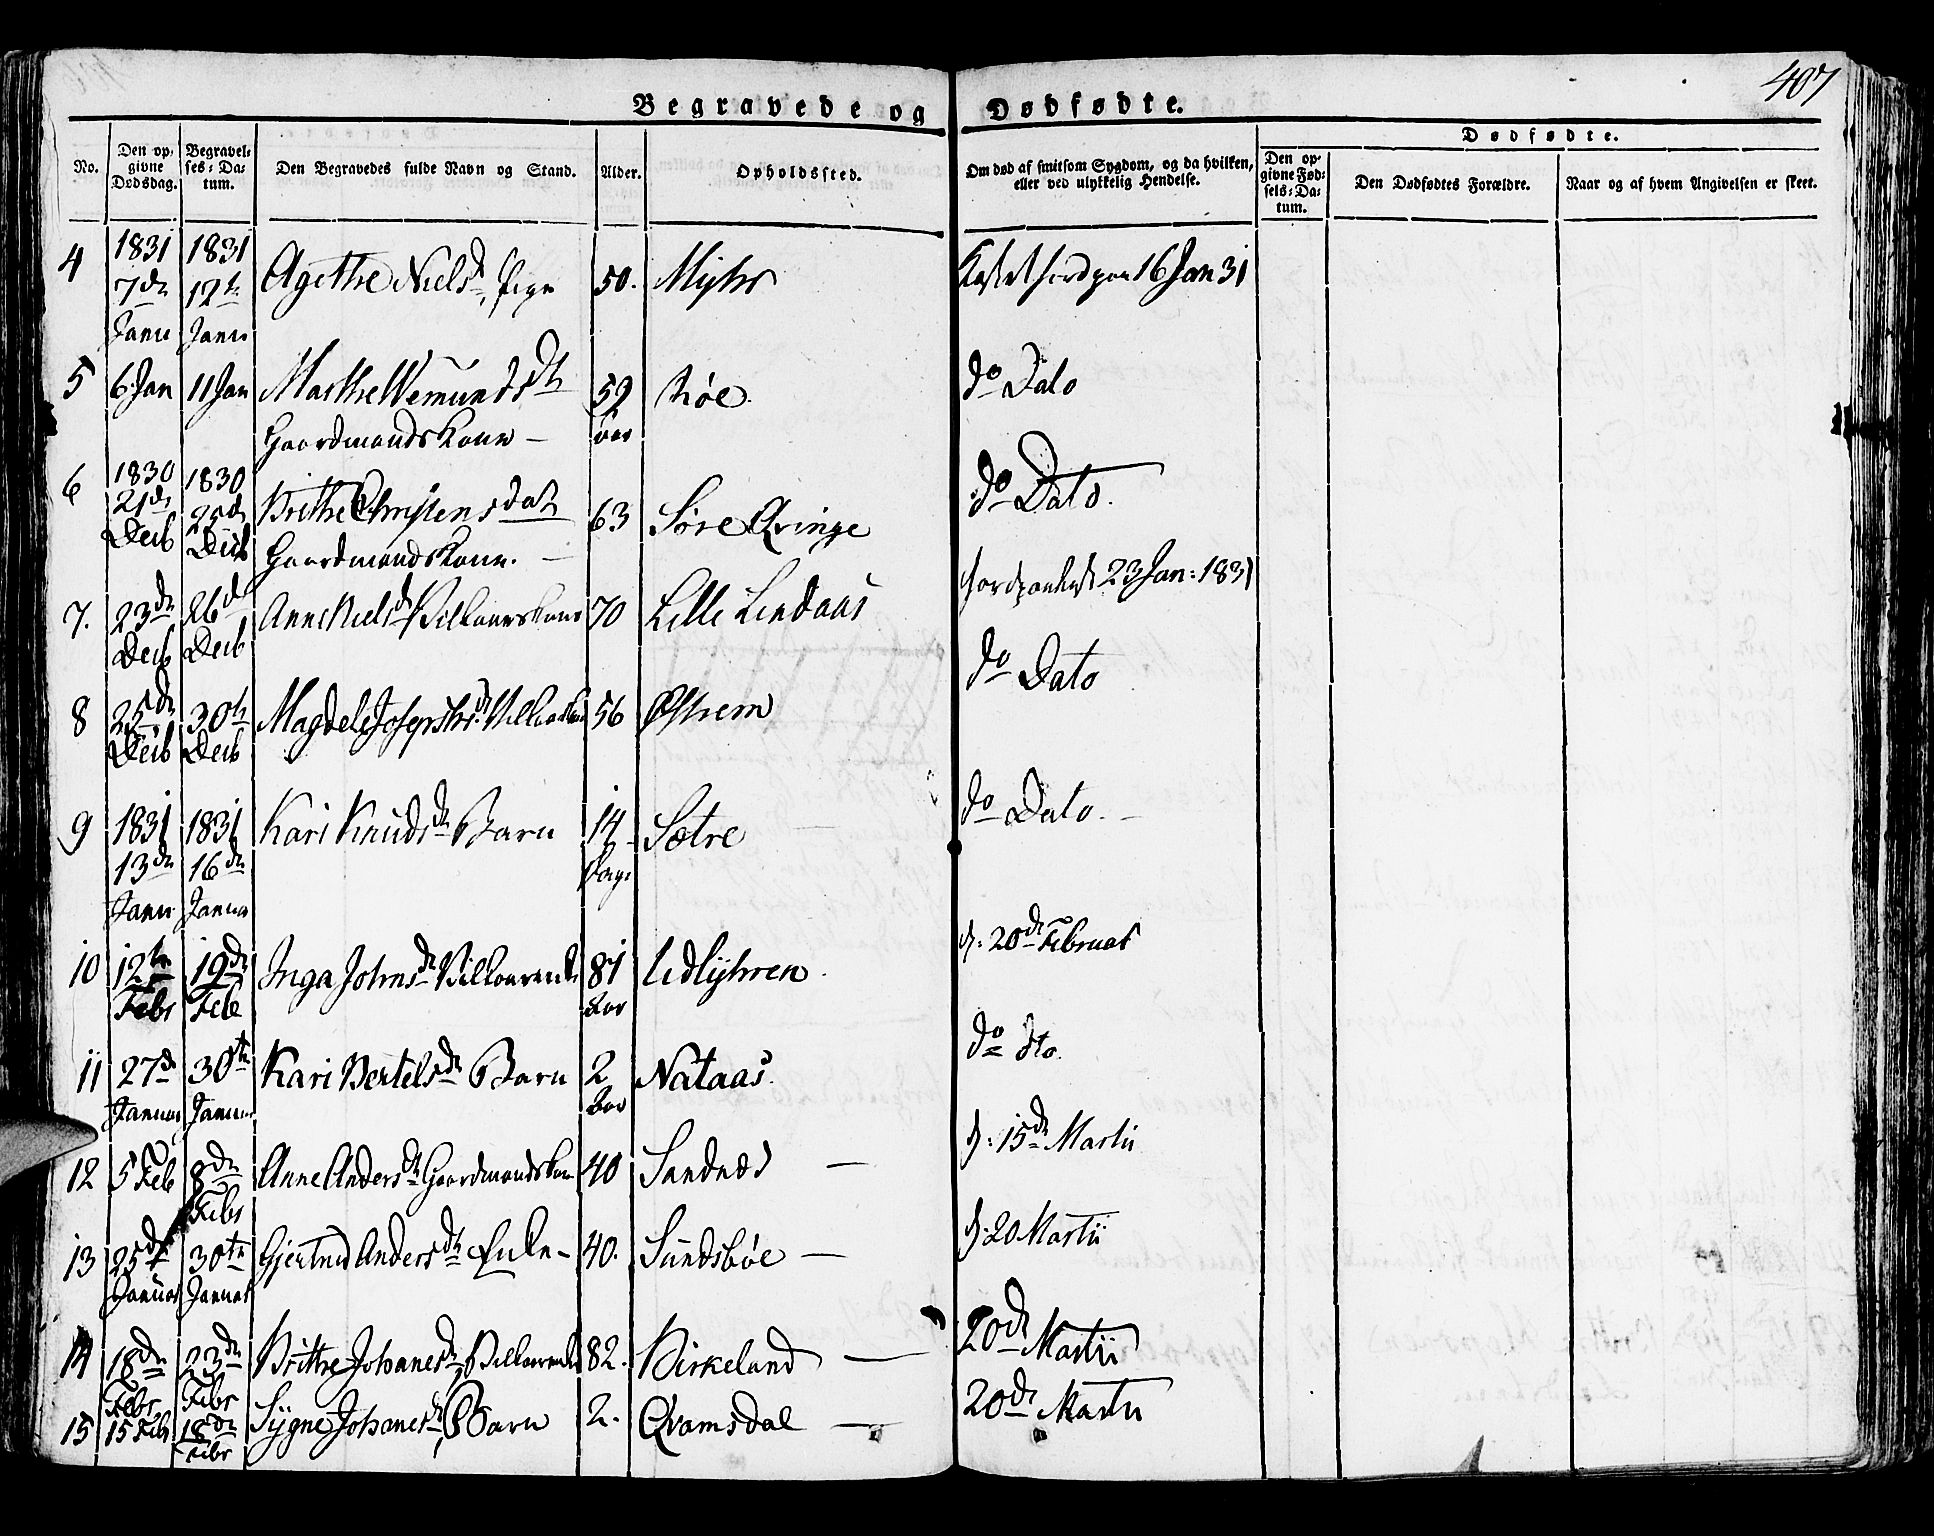 407
Begravede og Dødfødte.
No.
Den opgivne Dødsdag.
Begravelses-Datum.
Den Begravedes fulde Navn og Stand.
Alder.
Opholdssted.
Om død af smitsom Sygdom, og da hvilken, eller ved ulykkelig Hendelse.
Dødfødte.
Den opgivne Fødsels-Datum.
Den Dødfødtes Forældre.
Naar og af hvem Angivelsen er skeet.
4 1831 7de Janu 1831 12te Janu Agethe Nielsd. Pige 50. Myhr 16 Jan 31
5 6 Jan 11 Jan Marthe Wemundsdtr 59 Aar
Gaardmands Kone — do Dato
6 1830 21de Decb 1830 25de Decb Brithe Christensdatr 63 Søre Qvinge do Dato.
Gaardmands Kone. —
7. 23de Decb 26d Decb Anne Nielsd 70 Lille Lindaas 23 Jan: 1831
8 25de Decb 30te Decb Magdele 56 Østrem do Dato
9 1831 13de Janu 1831 16de Janua Kari Knudsdr Barn 14 Dage Sætre do Dato. —
10 12te Febr 19de Feb Inga Johnsdr 81 Aar d: 20de Februar
11 27de Januar 30te Januar Kari Bertelsdr Barn 2 Aar Nataas. do dto.
12 5 Feb 8de Febr Anne Andersdtr Gaardmandskone 40 Sandnæs — d: 15de Martii
13 25de Januar 30te Januar Gjertrud Andersdtr Enke — 40. Sundsbøe — d: 20 Martii
14 18de Febr 23de Febr Brithe Johanesdr 82. Birkeland — 20de Martii
15 15 Feb 18de Febr Sÿgne Johanesdr Barn 2. Qvamsdal — 20de Martii